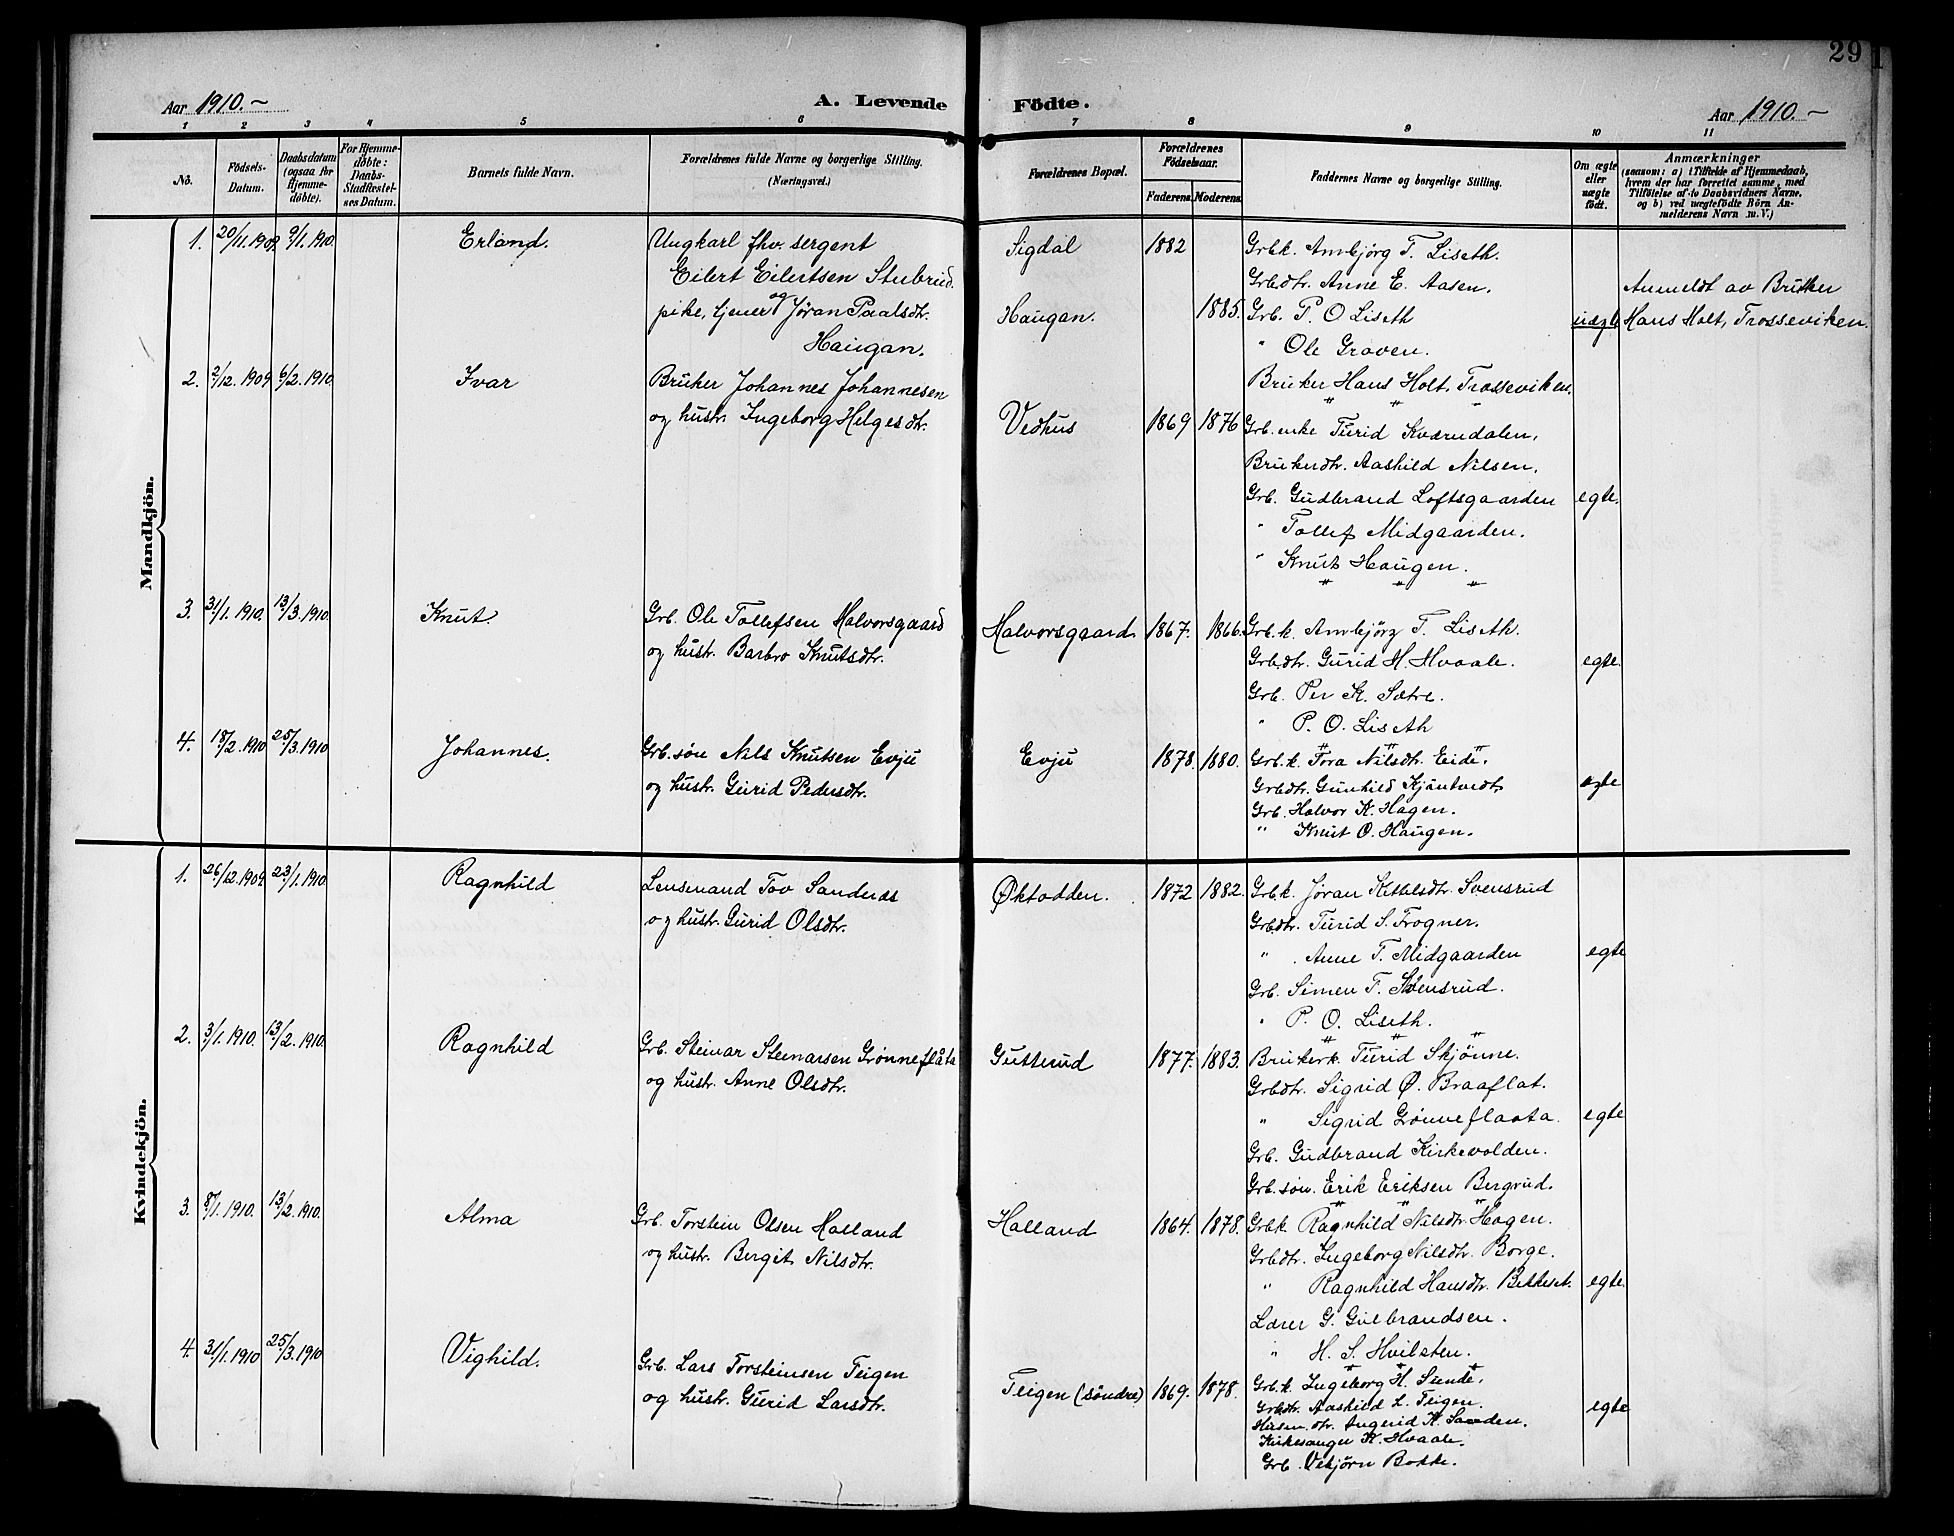 29
Aar 1910.~ A. Levende Födte. Aar 1910.~
1 2 3 4 5 6 7 8 9 10 11
No.
Födsels-Datum.
Daabsdatum (ogsaa for Hjemme-döbte).
For Hjemme-døbte: Daabs-Stadfæstel-ses Datum.
Barnets fulde Navn.
Forældrenes fulde Navne og borgerlige Stilling. (Næringsvei.)
Forældrenes Bopæl.
Forældrenes Födselsaar.
Faderens. Moderens.
Faddernes Navne og borgerlige Stilling.
Om ægte eller uægte födt.
Anmærkninger
(saasom: a) i Tilfælde af Hjemmedaab,
hvem der har forrettet samme, med
Tilføielse af to Daabsvidners Navne.
og b) ved uægtefödte Börn An-
melderens Navn m. V.)
Mandkjön.
1. 20/11.1909. 9/1.1910. Erland. Ungkarl fhv. sergent Sigdal 1882 Grbk. Ambjørg T. Liseth.
Eilert Eilertsen Stubrud. Grbdtr. Anne E. Aasen. Anmeldt av Bruker
pike, tjener og Jøran Paalsdtr. Haugan. 1885. Grb. P. O Liseth uægte Hans Holt, Trosseviken.
Haugan. " Ole Graven.
2. 2/12.1909 6/2.1910 Ivar Bruker Johannes Johannesen Bruker Hans Holt, Trosseviken.
" " "
og hustr. Ingeborg Helgesdtr. Vedhus 1869 1876 Grb. enke Turid Kværndalen,
Brukerdtr. Aashild Nilsen.
Grb. Gudbrand Loftsgaarden egte.
" Tollef Midgaarden.
" Knut Haugen.
" " "
3. 31/1.1910. 13/3.1910. Knut Grb. Ole Tollefsen Halvorsgaard Halvorsgaard 1867. 1866. Grb.k. Ambjørg T. Liseth.
og hustr. Barbro Knutsdtr. Grbdtr. Gurid H. Hvaale. egte.
Grb. Per K. Sætre.
" P. O. Liseth
" " "
4. 18/2.1910 25/3.1910 Johannes. Grb.søn Nils Knutsen Evju Evju 1878. 1880. Grb.k. Tora Nilsdtr. Eide.
og hustr. Gurid Pedersdtr. Grbdtr. Gunhild Kjøntvedt egte
Grb. Halvor K. Hagen.
" Knut O. Haugen.
Kvindekjön.
1. 26/12.1909. 23/1.1910. Ragnhild Lensmand Tov Sandnæs Øktodden. 1872 1882. Grb.k. Jøran Kittilsdtr. Svensrud
og hustr. Gurid Olsdtr. Grbdtr. Turid S. Frogner.
" Anne T. Midgaarden egte
Grb. Simen T. Svensrud.
" P. O. Liseth.
" " "
2. 3/1.1910. 13/2.1910. Ragnhild Grb. Steinar Steinarsen Grønneflåta Gutterud 1877. 1883. Brukerk. Turid Skjønne.
og hustr. Anne Olsdtr. Grbdtr. Sigrid Ø. Braaflat.
" Sigrid Grønneflaata. egte
Grb. Gudbrand Kirkevolden.
Grb. søn. Erik Eriksen Bergrud.
" " "
3. 8/1.1910. 13/2.1910. Alma Grb. Torstein Olsen Halland Halland 1864. 1878. Grbk. Ragnhild Nilsdtr. Hagen.
og hustr. Bergit Nilsdtr. Grbdtr. Ingeborg Nilsdtr. Borge.
" Ragnhild Hansdtr. Bekkeset. egte.
Lærer G. Gulbrandsen.
" H. S. Hvilsten.
" " "
4. 31/1.1910 25/3.1910 Vighild. Grb. Lars Torsteinsen Teigen Teigen (søndre) 1869. 1878. Grb.k. Ingeborg H. Sunde.
og hustr. Gurid Larsdtr. Grbdtr. Aashild L. Teigen. egte
Husm. dtr. Angerid K. Sanden.
Kirkesanger K. Hvaale.
Grb. Vebjørn Bakke.